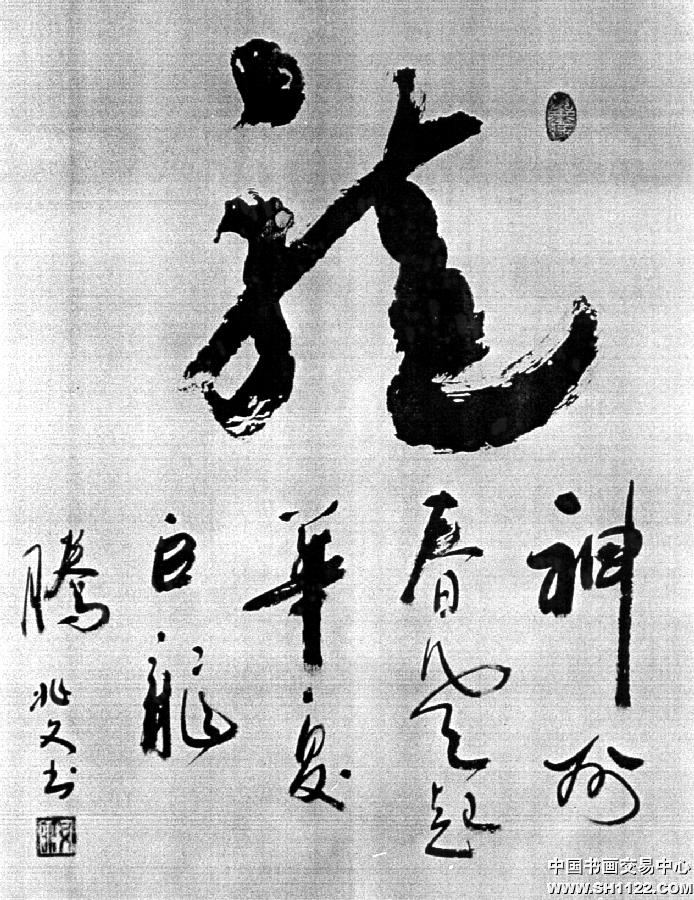 龙
神州
春風起
華夏
巨龍
騰
兆文书
中国书画交易中心
WWW.SH1122.COM